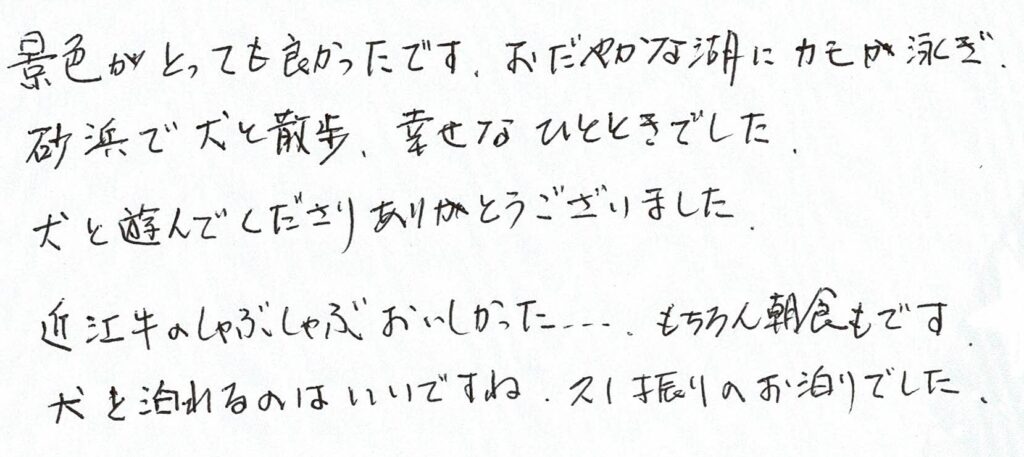 景色がとっても良かったです、おだやかな湖にカモが泳ぎ、
砂浜で犬と散歩、幸せなひとときでした、
犬と遊んでくださりありがとうございました、
近江牛のしゃぶしゃぶおいしかった‥‥、もちろん朝食もです、
犬と泊れるのはいいですね、久し振りのお泊りでした、